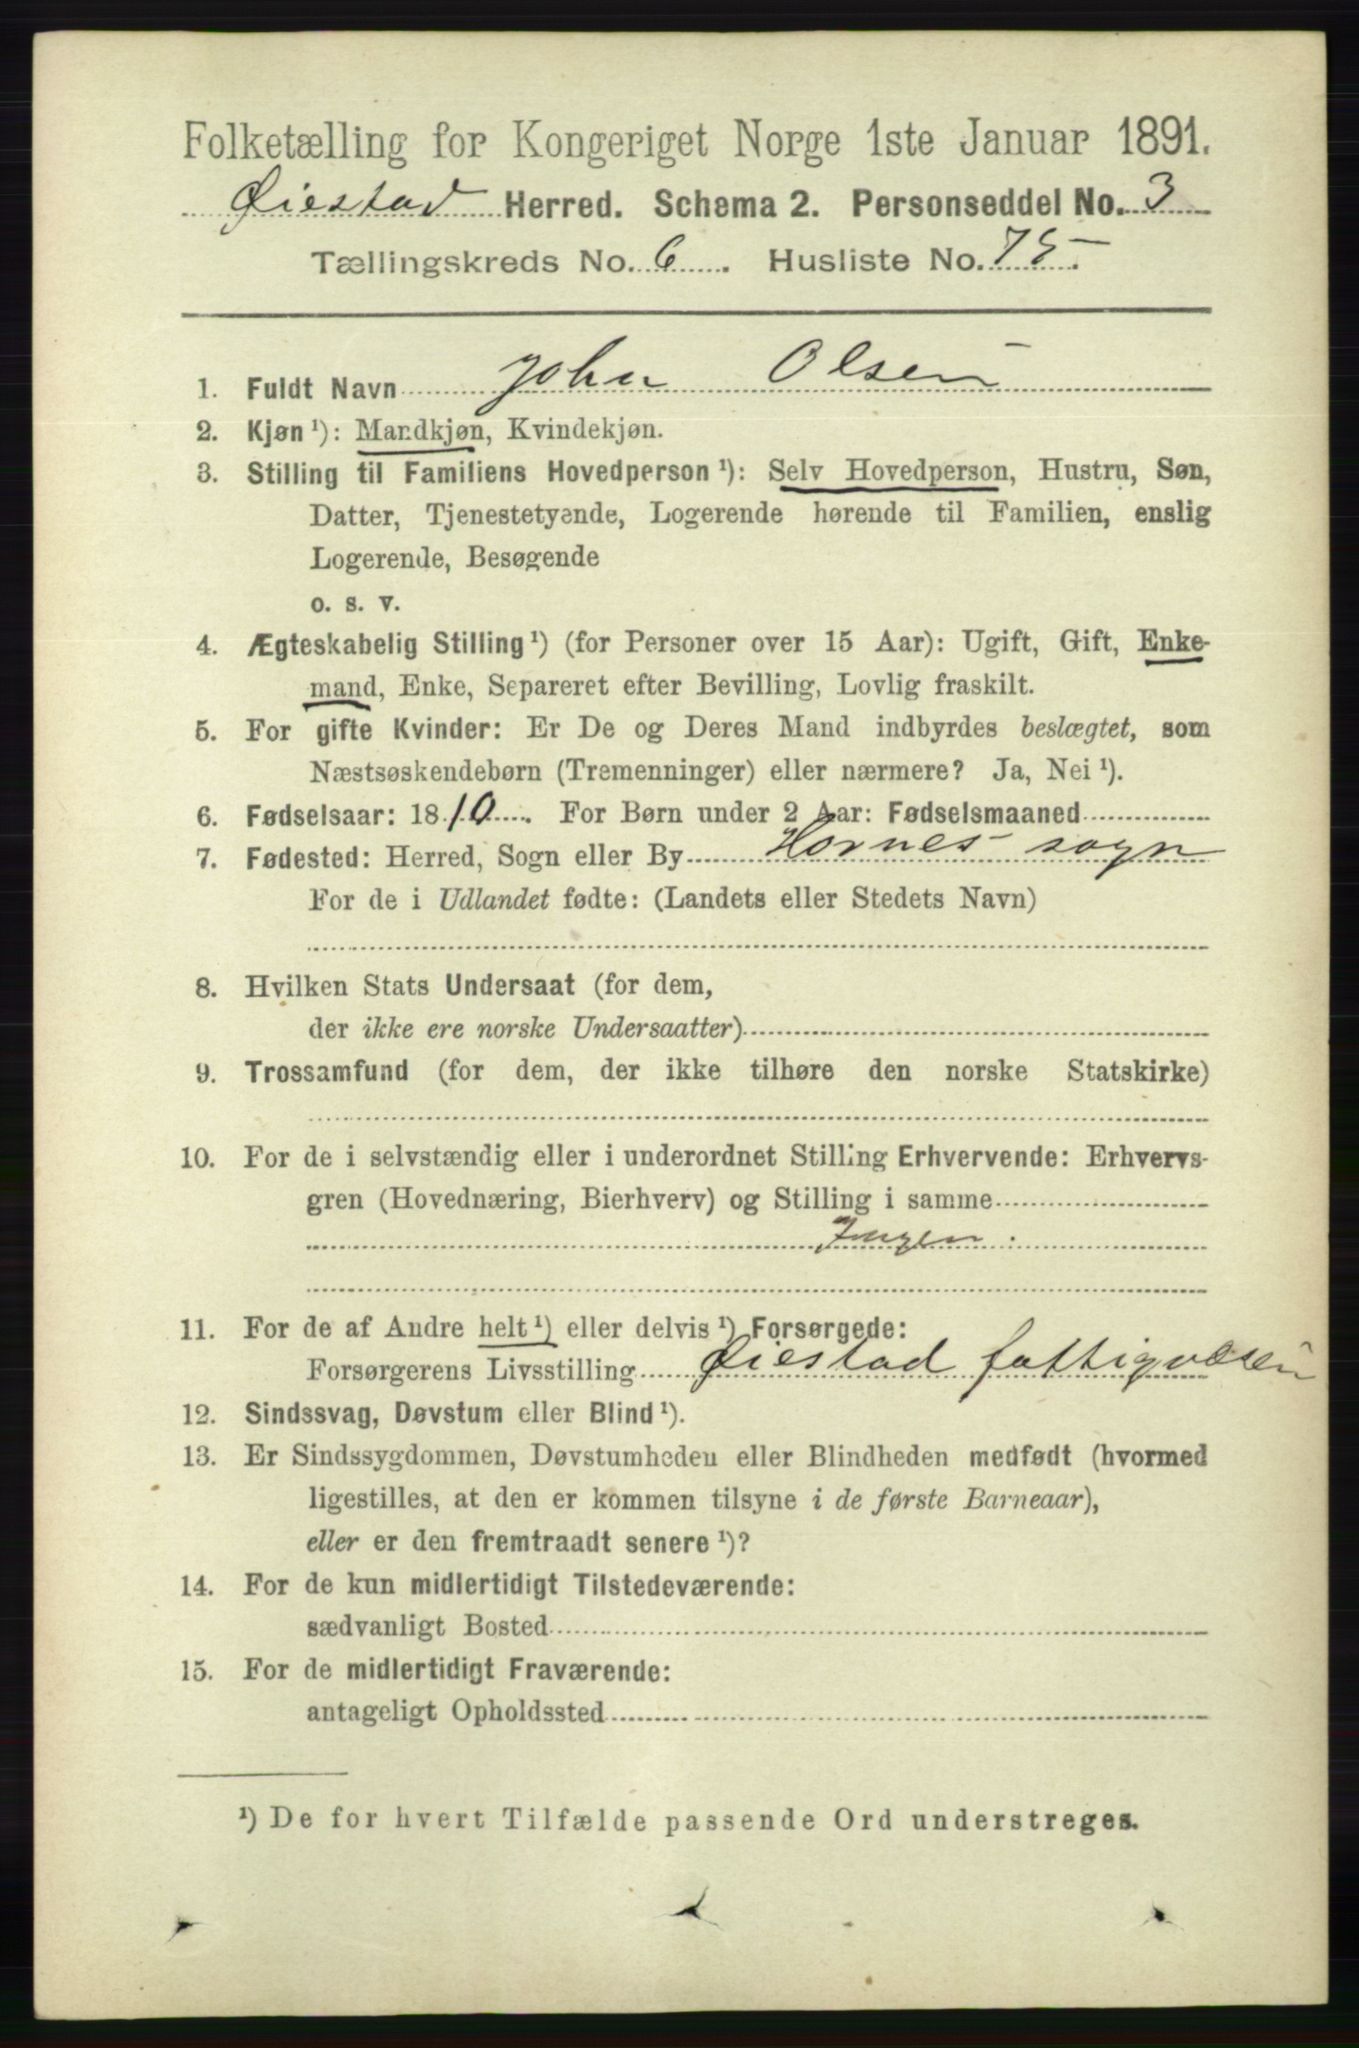 Folketælling for Kongeriget Norge 1ste Januar 1891.
Øiestad Herred. Schema 2. Personseddel No. 3
Tællingskreds No. 6. Husliste No. 75.
1. Fuldt Navn John Olsen
2. Kjøn ¹): Mandkjøn, Kvindekjøn.
3. Stilling til Familiens Hovedperson ¹): Selv Hovedperson, Hustru, Søn,
Datter, Tjenestetyende, Logerende hørende til Familien, enslig
Logerende, Besøgende
o. s. v.
4. Ægteskabelig Stilling ¹) (for Personer over 15 Aar): Ugift, Gift, Enke-
mand, Enke, Separeret efter Bevilling, Lovlig fraskilt.
5. For gifte Kvinder: Er De og Deres Mand indbyrdes beslægtet, som
Næstsøskendebørn (Tremenninger) eller nærmere? Ja, Nei ¹).
6. Fødselsaar: 1810. For Børn under 2 Aar: Fødselsmaaned
7. Fødested: Herred, Sogn eller By Hornes sogn
For de i Udlandet fødte: (Landets eller Stedets Navn)
8. Hvilken Stats Undersaat (for dem,
der ikke ere norske Undersaatter)
9. Trossamfund (for dem, der ikke tilhøre den norske Statskirke)
10. For de i selvstændig eller i underordnet Stilling Erhvervende: Erhvervs-
gren (Hovednæring, Bierhverv) og Stilling i samme
Ingen.
11. For de af Andre helt ¹) eller delvis ¹) Forsørgede:
Forsørgerens Livsstilling Øiestad fattigvæsen
12. Sindssvag, Døvstum eller Blind ¹).
13. Er Sindssygdommen, Døvstumheden eller Blindheden medfødt (hvormed
ligestilles, at den er kommen tilsyne i de første Barneaar),
eller er den fremtraadt senere ¹)?
14. For de kun midlertidigt Tilstedeværende:
sædvanligt Bosted
15. For de midlertidigt Fraværende:
antageligt Opholdssted
¹) De for hvert Tilfælde passende Ord understreges.